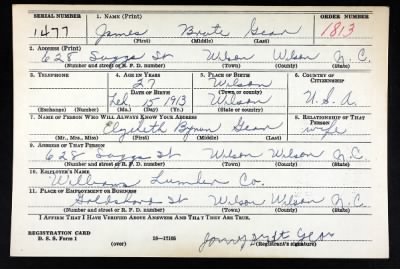 SERIAL NUMBER 1. NAME (Print) ORDER NUMBER
1477 James Brute Gear 1813
(First) (Middle) (Last)
2. ADDRESS (Print)
628 Suggs St Wilson Wilson N.C.
(Number and street or R. F. D. number) (Town) (County) (State)
3. TELEPHONE 4. AGE IN YEARS 5. PLACE OF BIRTH 6. COUNTRY OF CITIZENSHIP
27 Wilson
DATE OF BIRTH (Town or county)
Feb 15 1913 Wilson U.S.A.
(Exchange) (Number) (Mo.) (Day) (Yr.) (State or country)
7. NAME OF PERSON WHO WILL ALWAYS KNOW YOUR ADDRESS 8. RELATIONSHIP OF THAT PERSON
Elizabeth Bynum Gear wife
(Mr., Mrs., Miss) (First) (Middle) (Last)
9. ADDRESS OF THAT PERSON
628 Suggs St Wilson Wilson N.C.
(Number and street or R. F. D. number) (Town) (County) (State)
10. EMPLOYER'S NAME
Williams Lumber Co.
11. PLACE OF EMPLOYMENT OR BUSINESS
Goldsboro St Wilson Wilson N.C.
(Number and street or R. F. D. number) (Town) (County) (State)
I AFFIRM THAT I HAVE VERIFIED ABOVE ANSWERS AND THAT THEY ARE TRUE.
REGISTRATION CARD
D. S. S. Form 1 (over) 16—17105 (Registrant's signature)